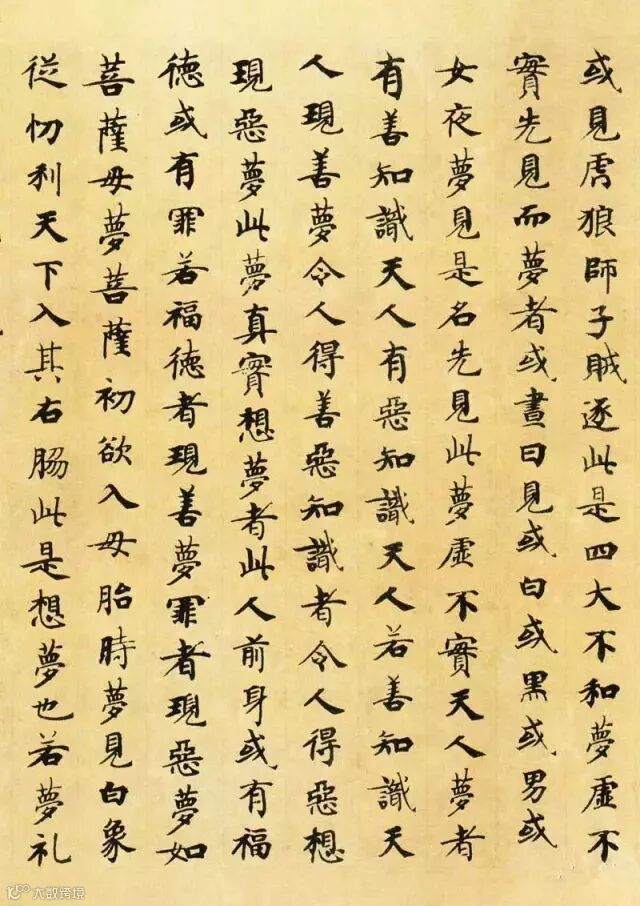 或見虎狼師子賊逐此是四大不和夢虛不
實先見而夢者或晝日見或白或黑或男或
女夜夢見是名先見此夢虛不實天人夢者
有善知識天人有惡知識天人若善知識天
人現善夢令人得善惡知識者令人得惡想
現惡夢此夢真實想夢者此人前身或有福
德或有罪若福德者現善夢罪者現惡夢如
菩薩母夢菩薩初欲入母胎時夢見白象
從忉利天下入其右脇此是想夢也若夢礼
大数跨境